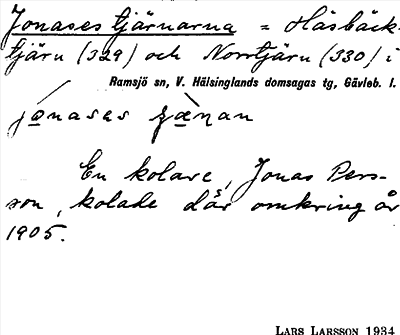 Jonases tjärnarna = Håsbäck-
tjärn (329) och Norrtjärn (330) i
Ramsjö sn, V. Hälsinglands domsagas tg, Gävleb. l.
En kolare, Jonas Pers-
son, kolade där omkring år
1905.
LARS LARSSON 1934